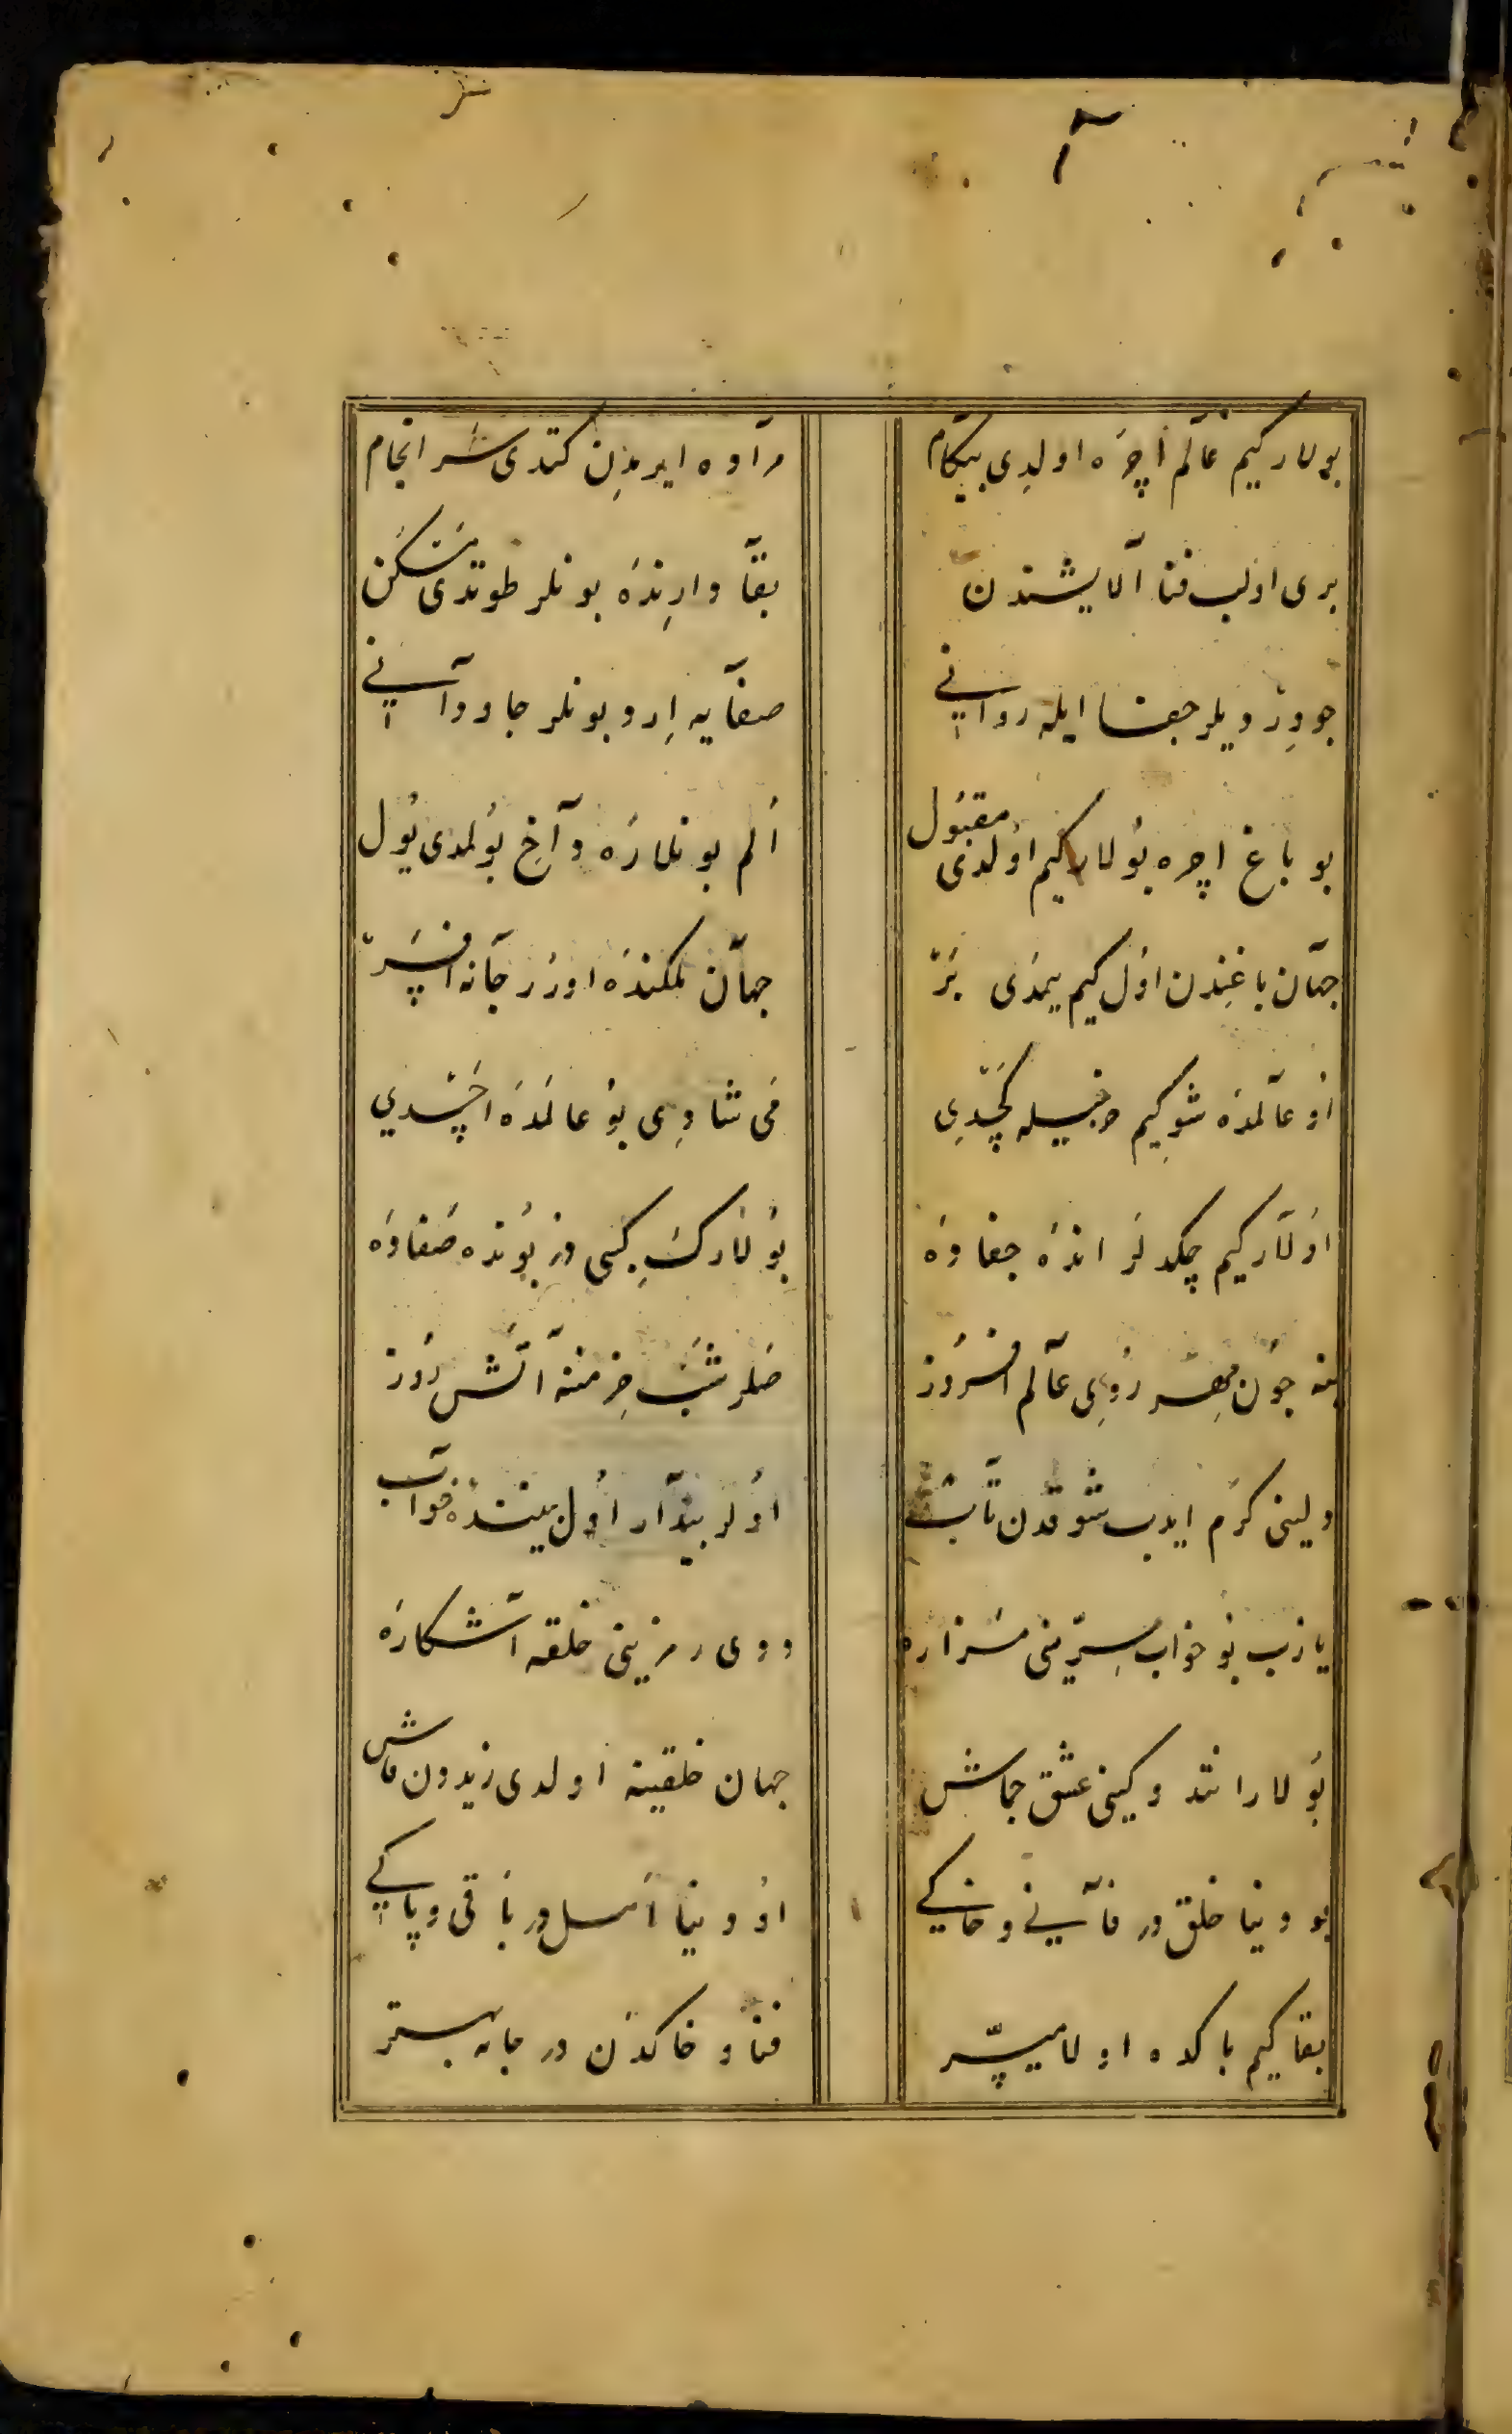 بولار كیم عالم اچره اولدی بیكام
مراده ایردن كتدی سرانجام
بری اولب فنا آلایشندن
بقا دارنده بونلر طوتدی مسكن
جو ویردیلر جفا ایله روانی
صفایه اردو بونلر جاودانی
بو باغ اچره بولار كیم اولدی مقبول
الم بونلاره داخ بولمدی یول
جهان باغندن اول كیم یمدی بر
جهان ملكنده اورر جانه افسر
او عالمده شو كیم خیله كچدی
می شادی بو عالمده اچدی
اولار كیم چكدلر انده جفا وه
بولار كسبی در بونده صفا وه
ینه جون مهر روی عالم افروز
صلر شب خرمننه آتش روز
دلینی كرم ایدب شوقدن تاب
اولر بیدار اول سینده خواب
یازب بو خواب سرینی سزاره
ددی رمزینی خلقه آشكاره
بولار انند وكینی عشق جماش
جهان خلقینه اولدی زیدون فاش
بو دنیا خلق در فانی و خاكی
او دنیا اهل در باقی و پاكی
بقا كیم باكده اولا میسر
فنا و خاكدن در جانه بستر